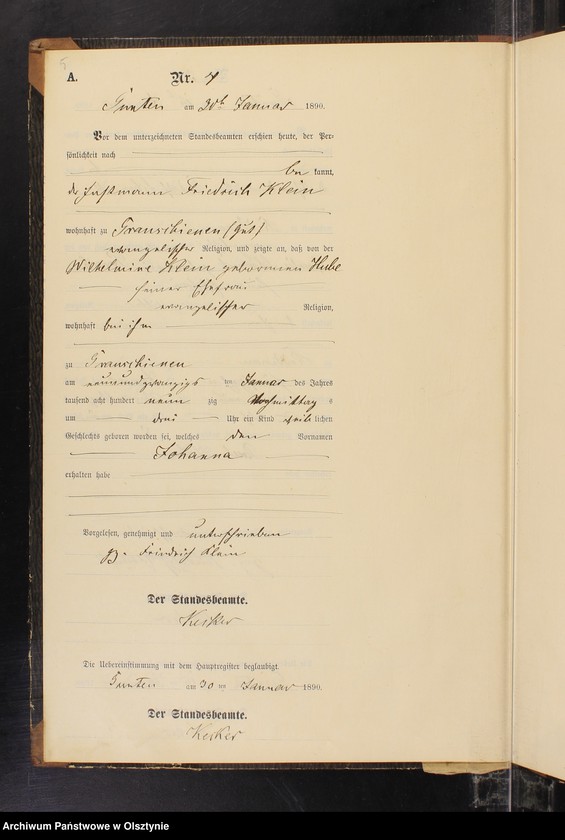 5
A. Nr. 7
am 30t Januar 1890.
Vor dem unterzeichneten Standesbeamten erschien heute, der Per-
sönlichkeit nach
be kannt,
der Friedrich Klein
wohnhaft zu (Gut)
evangelischer Religion, und zeigte an, daß von der
Wilhelmine Klein geborenen Hube
seiner Ehefrau
evangelischer Religion,
wohnhaft bei ihm
zu
am neunundzwanzigs ten Januar des Jahres
tausend acht hundert neun zig mittag s
um drei Uhr ein Kind weib lichen
Geschlechts geboren worden sei, welches den Vornamen
Johanna
erhalten habe
Vorgelesen, genehmigt und unterschrieben
gz. Friedrich Klein
Der Standesbeamte.
Die Uebereinstimmung mit dem Hauptregister beglaubigt
am 30 ten Januar 1890.
Der Standesbeamte.
Archiwum Państwowe w Olsztynie